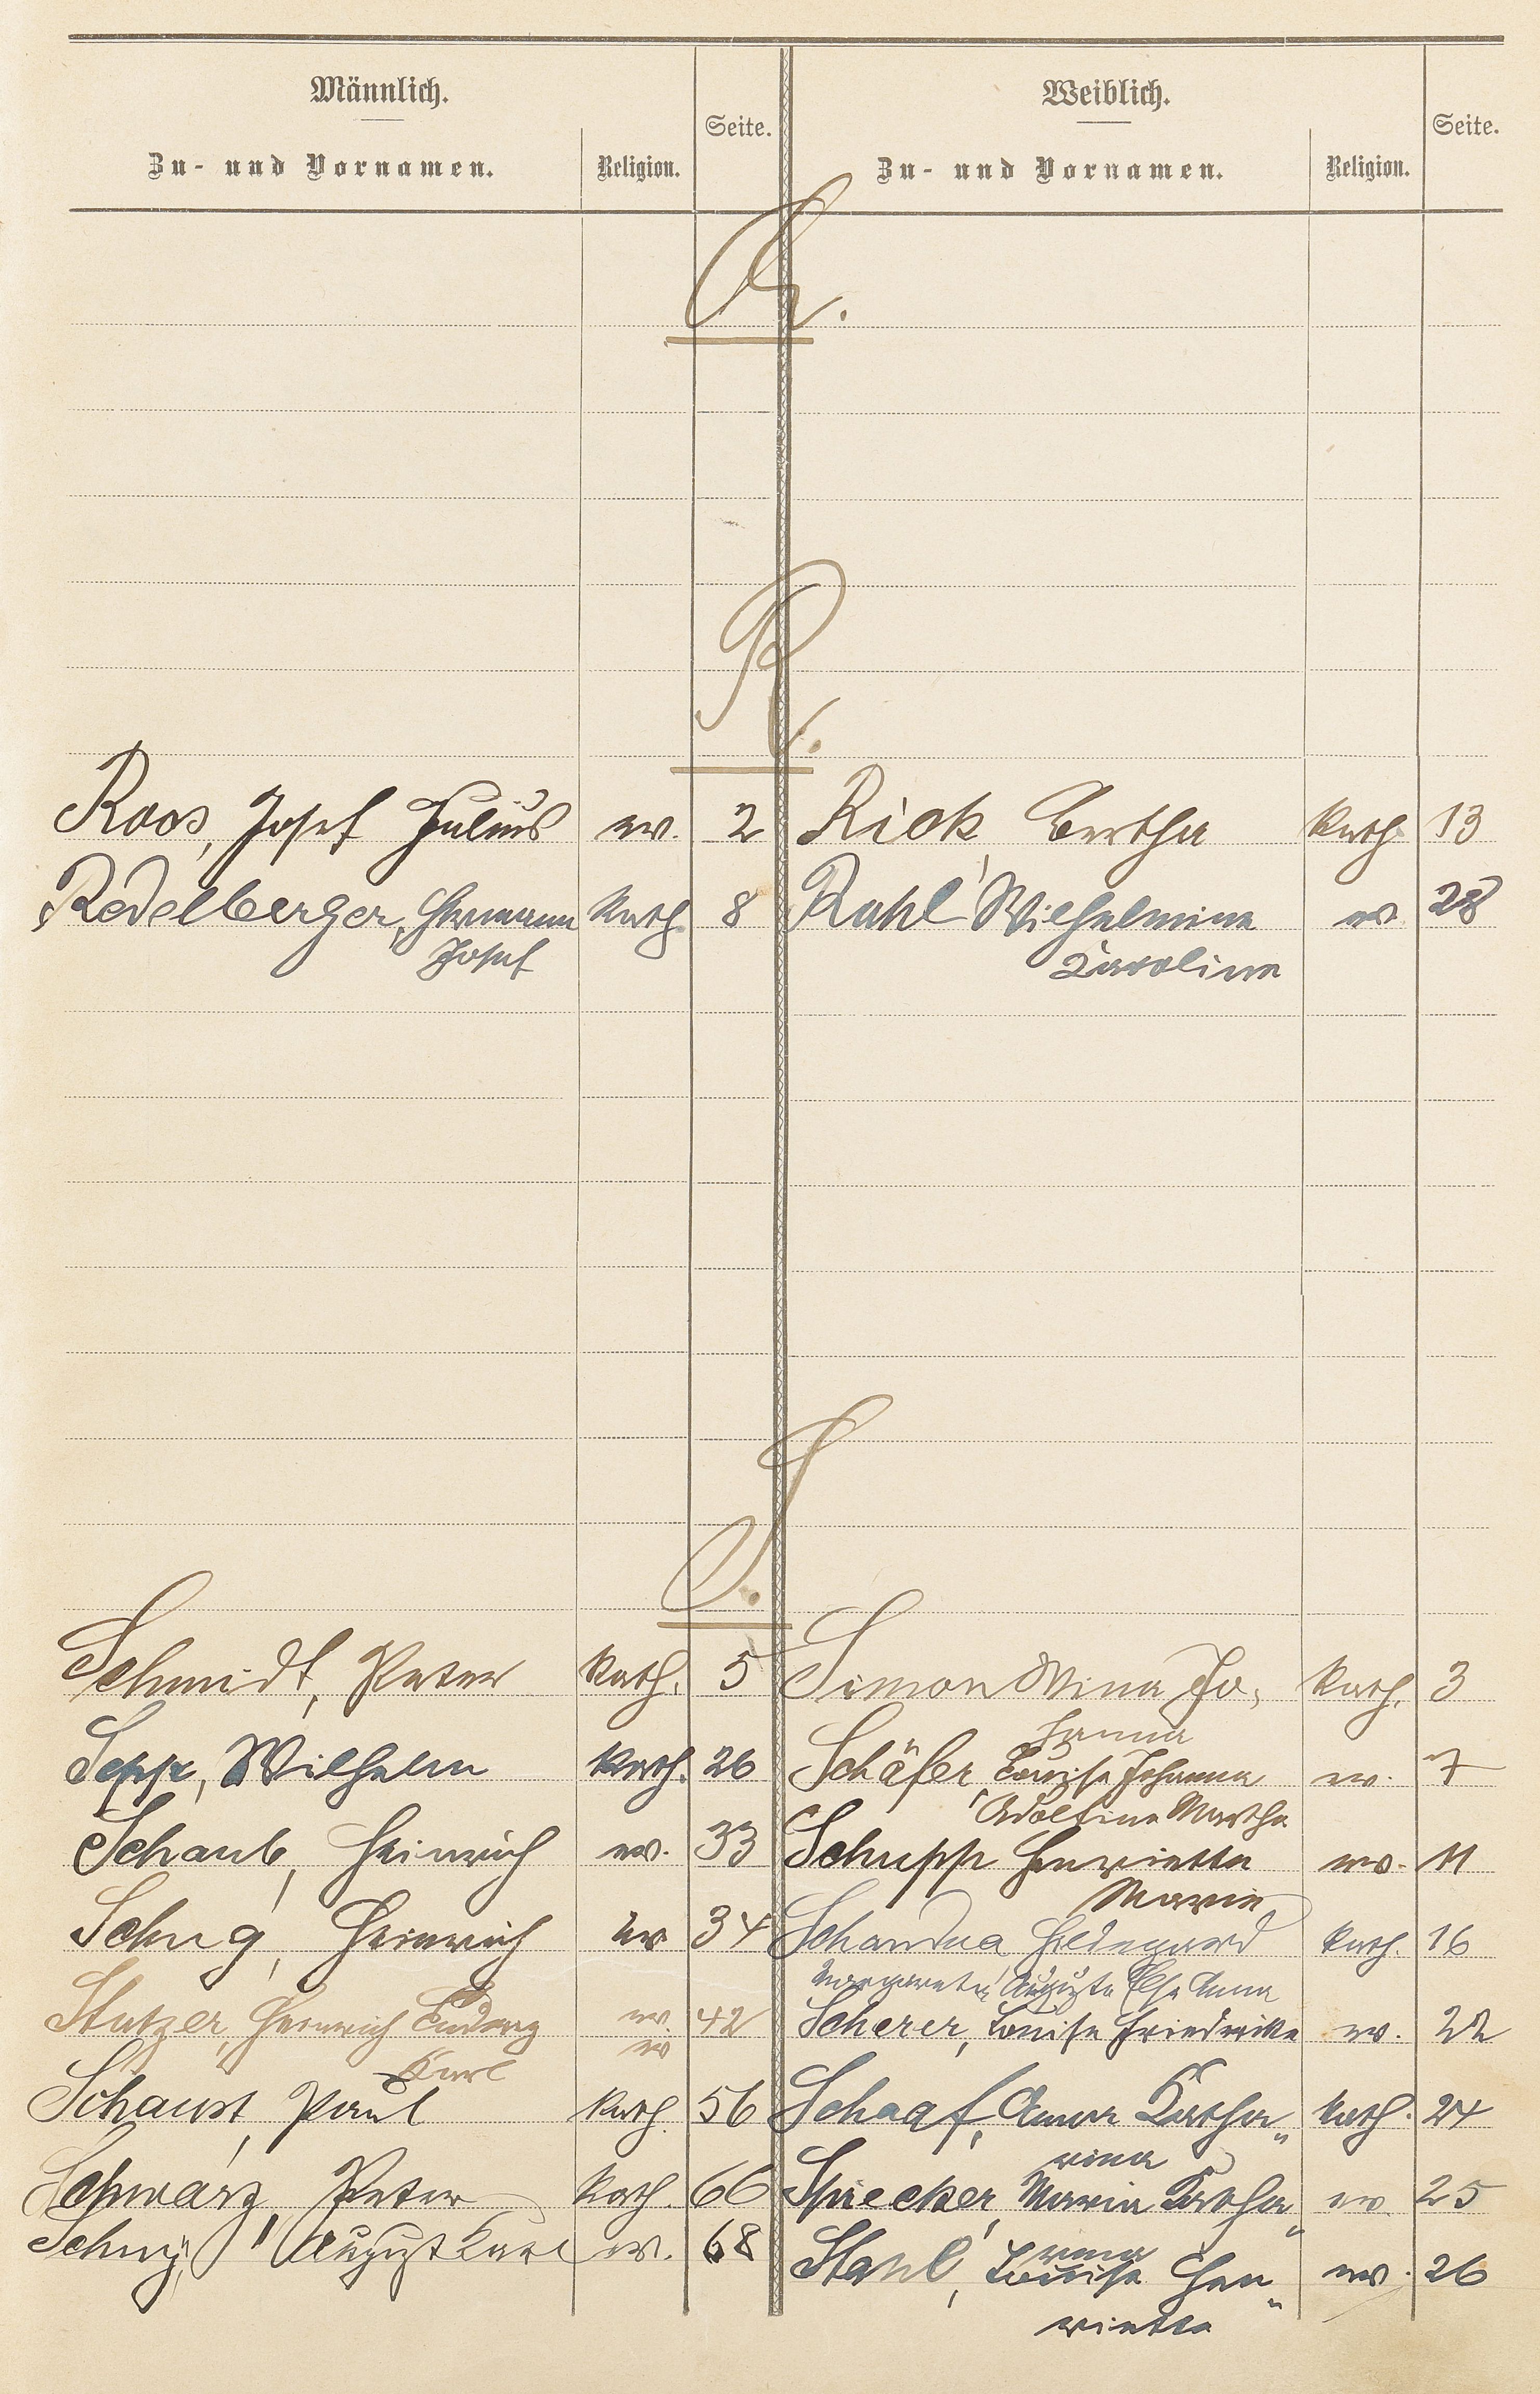 Männlich.
Zu- und Vornamen.
Religion.
Seite.
Weiblich.
Zu- und Vornamen.
Religion.
Seite.
Q.
R.
Roos, Josef Julius ev. 2
Rick, Bertha kath. 13
Redelberger, Hermann kath. 8
Josef
Rahl, Wilhelmine ev. 28
Karoline
S.
Schmidt, Peter kath. 5
Simon Mina Jo- kath. 3
hanna
Sepp, Wilhelm kath. 26
Schäfer, Louise Johanna ev. 7
Adolfine Martha
Schaub, Heinrich ev. 33
Schupp Henriette ev. 11
Marie
Schug, Heinrich ev 34
Schandua, Hildegard kath. 16
Margarete Auguste Else Anna
Stutzer, Heinrich Ludwig ev. 42
Karl ev
Scherer, Louise Friederike ev. 22
Schaust, Paul kath. 56
Schaaf, Anna Katha„ kath. 24
rina
Schwarz, Peter kath. 66
Spriecker, Maria Katha„ ev. 25
rina
Schug, August Karl ev. 68
Stahl, Louise Hen„ ev. 26
riette